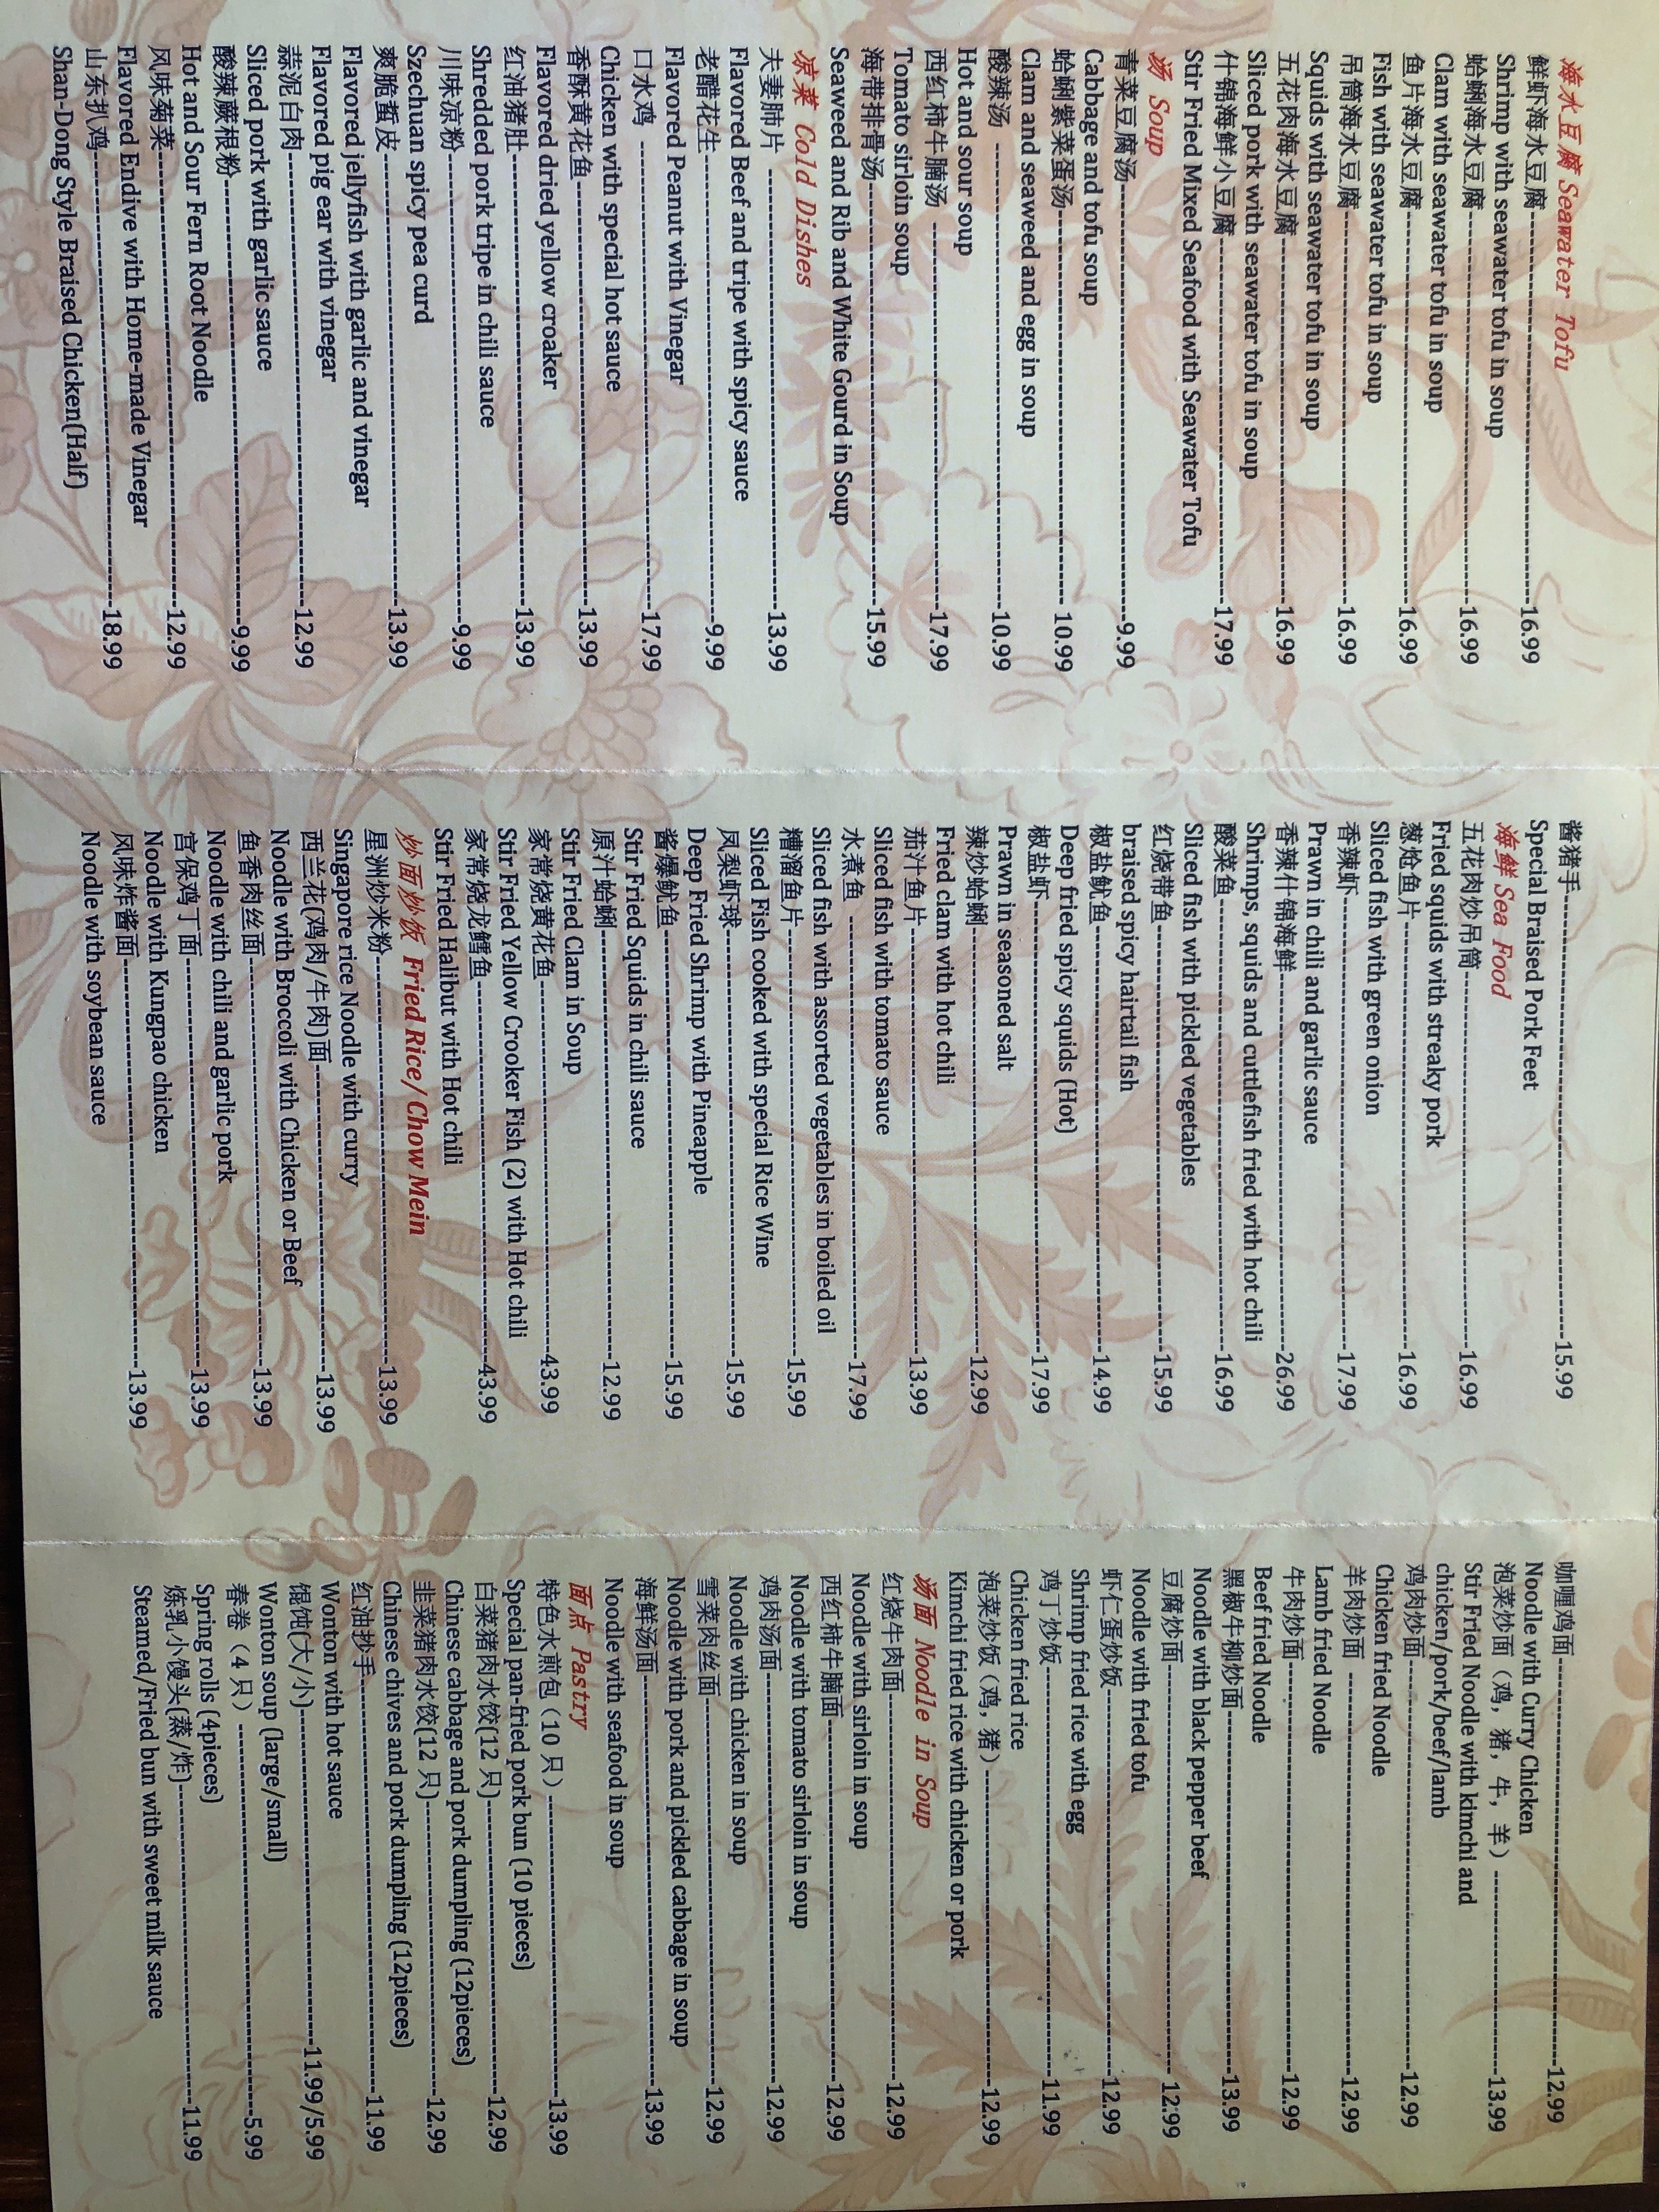 海水豆腐 Seawater Tofu
鲜虾海水豆腐--------------------16.99
Shrimp with seawater tofu in soup
蛤蜊海水豆腐--------------------16.99
Clam with seawater tofu in soup
鱼片海水豆腐--------------------16.99
Fish with seawater tofu in soup
吊筒海水豆腐--------------------16.99
Squids with seawater tofu in soup
五花肉海水豆腐--------------------16.99
Sliced pork with seawater tofu in soup
什锦海鲜小豆腐--------------------17.99
Stir Fried Mixed Seafood with Seawater Tofu
汤 Soup
青菜豆腐汤--------------------9.99
Cabbage and tofu soup
蛤蜊紫菜蛋汤-------------------- 10.99
Clam and seaweed and egg in soup
酸辣汤 --------------------10.99
Hot and sour soup
西红柿牛腩汤 --------------------17.99
Tomato sirloin soup
海带排骨汤--------------------15.99
Seaweed and Rib and White Gourd in Soup
凉菜 Cold Dishes
夫妻肺片 --------------------13.99
Flavored Beef and tripe with spicy sauce
老醋花生--------------------9.99
Flavored Peanut with Vinegar
口水鸡 --------------------17.99
Chicken with special hot sauce
香酥黄花鱼--------------------13.99
Flavored dried yellow croaker
红油猪肚--------------------13.99
Shredded pork tripe in chili sauce
川味凉粉--------------------9.99
Szechuan spicy pea curd
爽脆蜇皮--------------------13.99
Flavored jellyfish with garlic and vinegar
Flavored pig ear with vinegar
蒜泥白肉--------------------12.99
Sliced pork with garlic sauce
酸辣蕨根粉--------------------9.99
Hot and Sour Fern Root Noodle
风味菊菜--------------------12.99
Flavored Endive with Home-made Vinegar
山东扒鸡--------------------18.99
Shan-Dong Style Braised Chicken(Half)
酱猪手--------------------15.99
Special Braised Pork Feet
海鲜 Sea Food
五花肉炒吊筒--------------------16.99
Fried squids with streaky pork
葱烩鱼片--------------------16.99
Sliced fish with green onion
香辣虾--------------------17.99
Prawn in chili and garlic sauce
香辣什锦海鲜--------------------26.99
Shrimps, squids and cuttlefish fried with hot chili
酸菜鱼--------------------16.99
Sliced fish with pickled vegetables
红烧带鱼--------------------15.99
braised spicy hairtail fish
椒盐鱿鱼--------------------14.99
Deep fried spicy squids (Hot)
椒盐虾--------------------17.99
Prawn in seasoned salt
辣炒蛤蜊--------------------12.99
Fried clam with hot chili
茄汁鱼片--------------------13.99
Sliced fish with tomato sauce
水煮鱼 --------------------17.99
Sliced fish with assorted vegetables in boiled oil
糟溜鱼片--------------------15.99
Sliced Fish cooked with special Rice Wine
凤梨虾球--------------------15.99
Deep Fried Shrimp with Pineapple
酱爆鱿鱼--------------------15.99
Stir Fried Squids in chili sauce
原汁蛤蜊--------------------12.99
Stir Fried Clam in Soup
家常烧黄花鱼--------------------43.99
Stir Fried Yellow Crooker Fish (2) with Hot chili
家常烧龙鳕鱼--------------------43.99
Stir Fried Halibut with Hot chili
炒面炒饭 Fried Rice/Chow Mein
星洲炒米粉--------------------13.99
Singapore rice Noodle with curry
西兰花(鸡肉/牛肉)面--------------------13.99
Noodle with Broccoli with Chicken or Beef
鱼香肉丝面--------------------13.99
Noodle with chili and garlic pork
宫保鸡丁面--------------------13.99
Noodle with Kungpao chicken
风味炸酱面--------------------13.99
Noodle with soybean sauce
咖喱鸡面--------------------12.99
Noodle with Curry Chicken
泡菜炒面（鸡，猪，牛，羊）--------------------13.99
Stir Fried Noodle with kimchi and
chicken/pork/beef/lamb
鸡肉炒面--------------------12.99
Chicken fried Noodle
羊肉炒面 --------------------12.99
Lamb fried Noodle
牛肉炒面--------------------12.99
Beef fried Noodle
黑椒牛柳炒面--------------------13.99
Noodle with black pepper beef
豆腐炒面--------------------12.99
Noodle with fried tofu
虾仁蛋炒饭--------------------12.99
Shrimp fried rice with egg
鸡丁炒饭--------------------11.99
Chicken fried rice
泡菜炒饭（鸡，猪）--------------------12.99
Kimchi fried rice with chicken or pork
汤面 Noodle in Soup
红烧牛肉面--------------------12.99
Noodle with sirloin in soup
西红柿牛腩面--------------------12.99
Noodle with tomato sirloin in soup
鸡肉汤面--------------------12.99
Noodle with chicken in soup
雪菜肉丝面--------------------12.99
Noodle with pork and pickled cabbage in soup
海鲜汤面--------------------13.99
Noodle with seafood in soup
面点 Pastry
特色水煎包（10 只）--------------------13.99
Special pan-fried pork bun (10 pieces)
白菜猪肉水饺(12 只)--------------------12.99
Chinese cabbage and pork dumpling (12pieces)
韭菜猪肉水饺(12 只)--------------------12.99
Chinese chives and pork dumpling (12pieces)
红油抄手--------------------11.99
Wonton with hot sauce
馄饨(大/小)--------------------11.99/5.99
Wonton soup (large/small)
春卷（4 只）--------------------5.99
Spring rolls (4pieces)
炼乳小馒头(蒸/炸)--------------------11.99
Steamed/Fried bun with sweet milk sauce